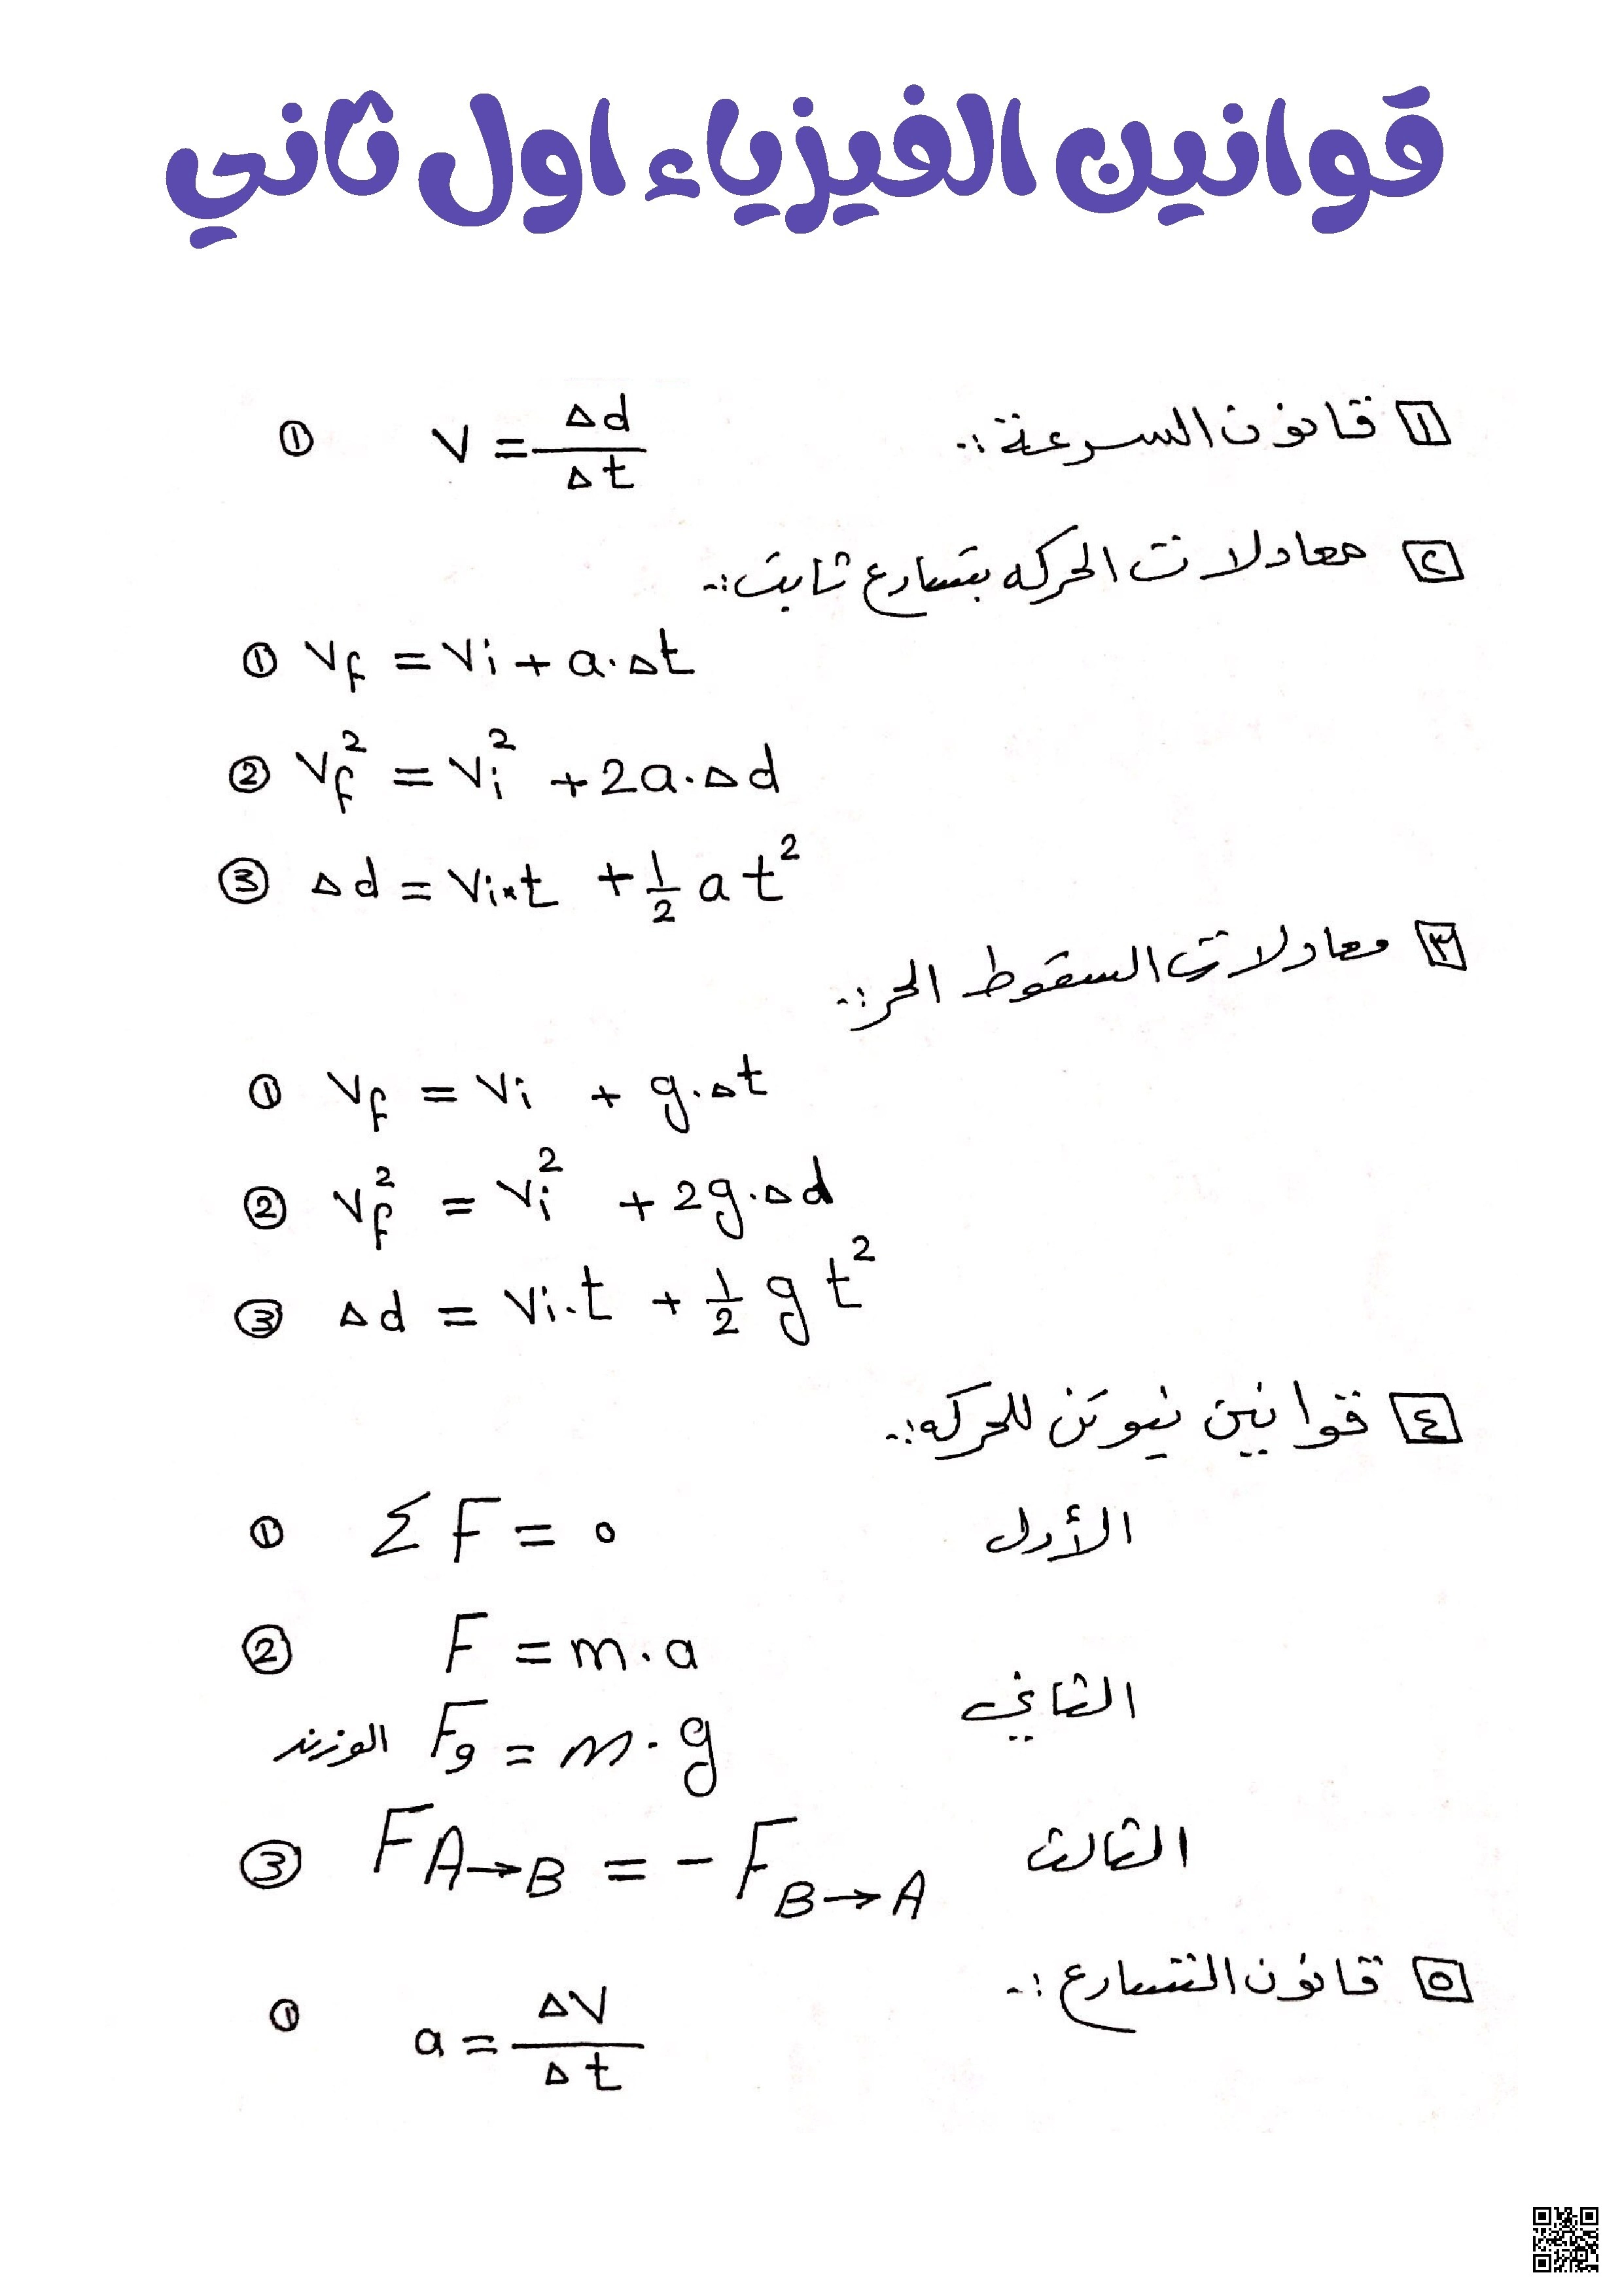 قوانين الفيزياء اول ثاني
١ قانون السرعة :-
① V = Δd / Δt
٢ معادلات الحركه بتسارع ثابت :-
① Vf = Vi + a.Δt
② Vf² = Vi² + 2a.Δd
③ Δd = Vi×t + 1/2 a t²
٣ معادلات السقوط الحر :-
① Vf = Vi + g.Δt
② Vf² = Vi² + 2g.Δd
③ Δd = Vi.t + 1/2 g t²
٤ قوانين نيوتن للحركه :-
الأول ① ΣF = 0
② F = m.a
الثاني
الوزن Fg = m.g
الثالث ③ FA→B = -FB→A
٥ قانون التسارع :-
① a = ΔV / Δt